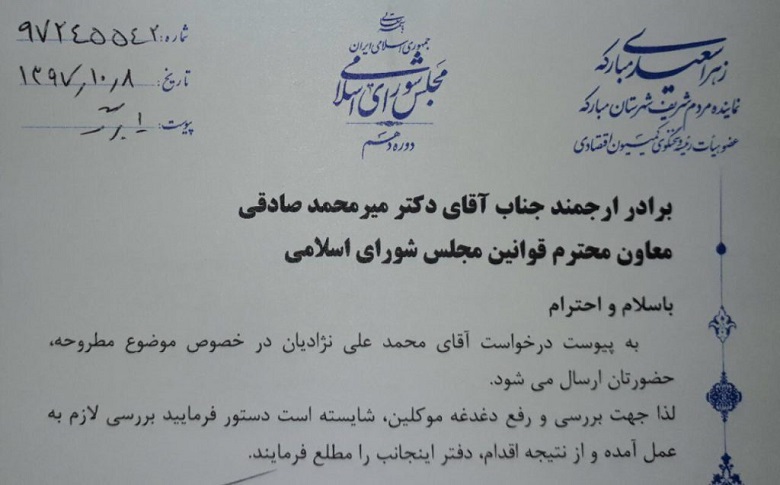 زهرا سعیدی مبارکه
نماینده مردم شریف شهرستان مبارکه
عضو هیأت رئیسه و سخنگوی کمیسیون اقتصادی
جمهوری اسلامی ایران
مجلس شورای اسلامی
دوره دهم
شماره: ۹۷۲۴۵۵۴۲
تاریخ: ۱۳۹۷,۱۰,۸
پیوست:
برادر ارجمند جناب آقای دکتر میرمحمد صادقی
معاون محترم قوانین مجلس شورای اسلامی
باسلام و احترام
به پیوست درخواست آقای محمد علی نژادیان در خصوص موضوع مطروحه،
حضورتان ارسال می شود.
لذا جهت بررسی و رفع دغدغه موکلین، شایسته است دستور فرمایید بررسی لازم به
عمل آمده و از نتیجه اقدام، دفتر اینجانب را مطلع فرمایند.